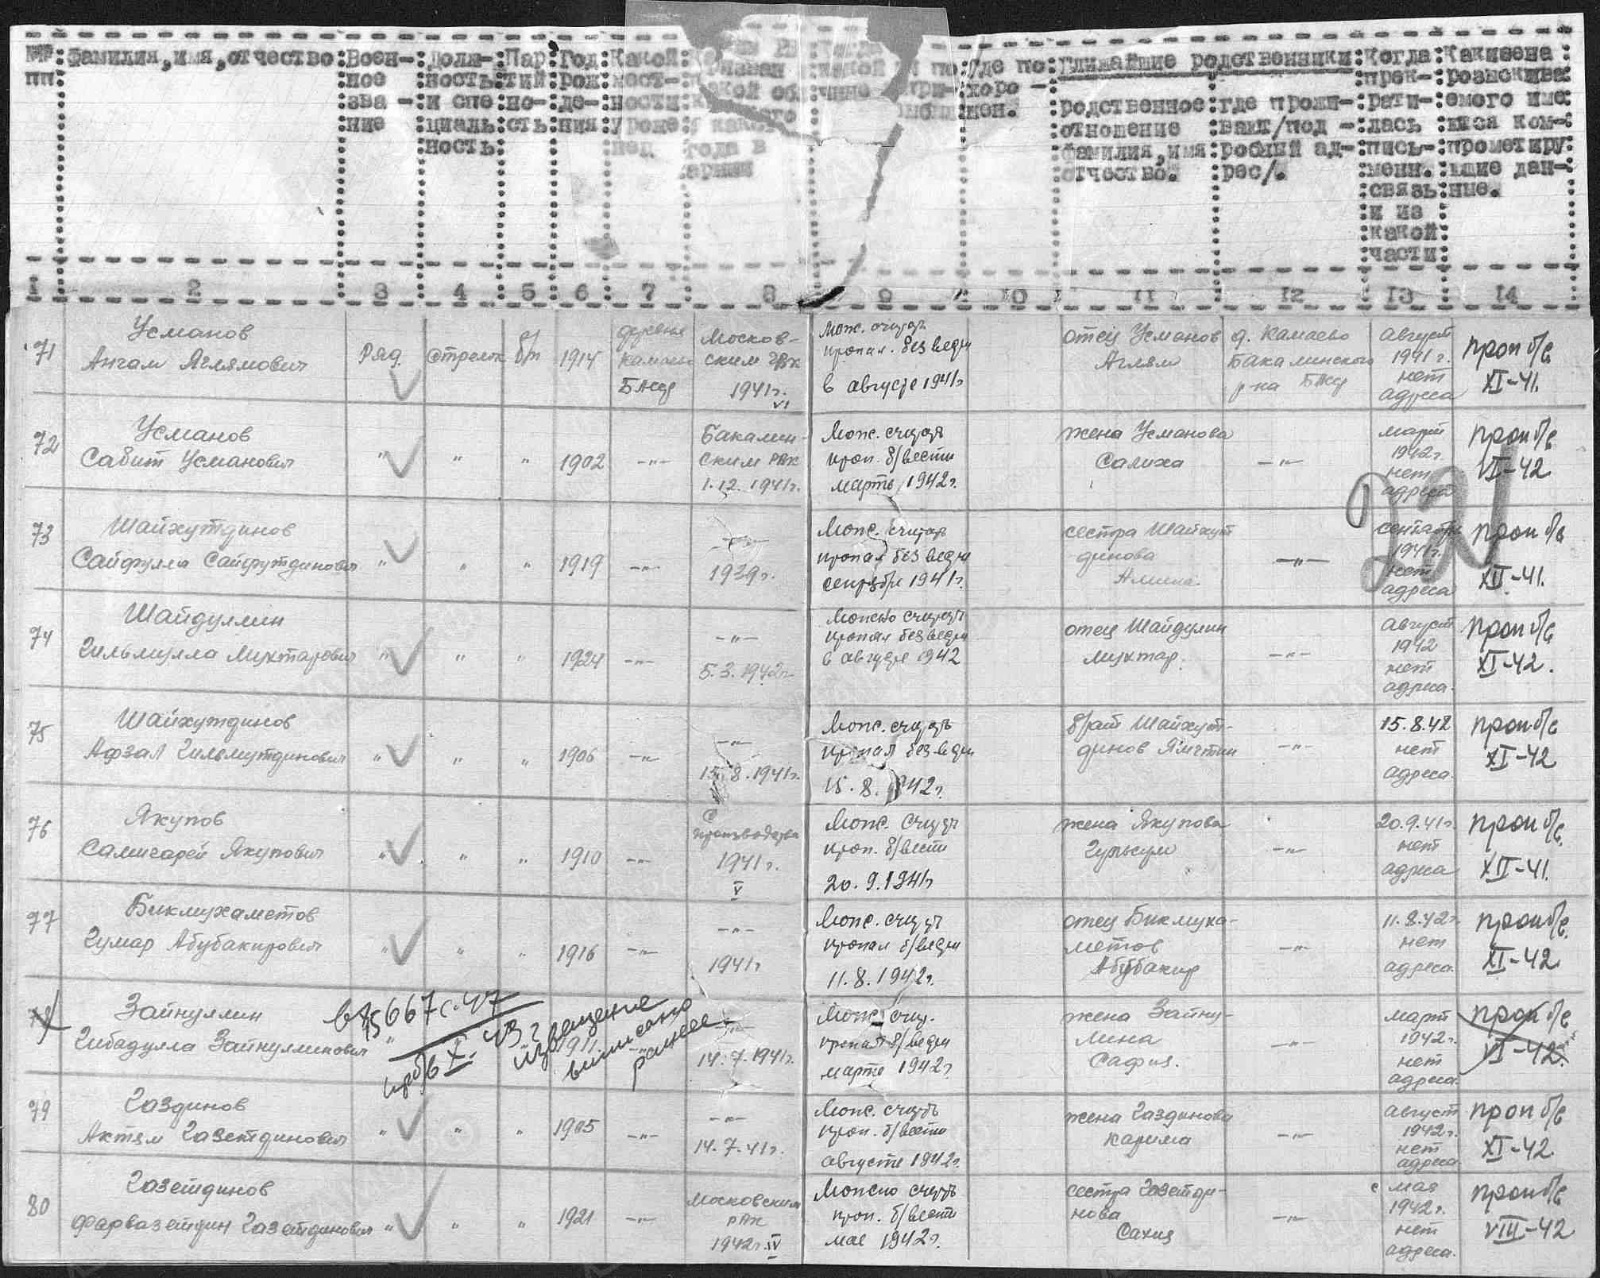 №№ пп
фамилия, имя, отчество
Воен-
ное
зва-
ние
Долж-
ность
и спе
циаль
ность
Пар
тий
но-
сть
Год
рож
де-
ния
Какой
мест-
ности
уроже
нец
года в
армии
Где по
хоро-
нен.
Ближайшие родственники
родственное
отношение
фамилия, имя
отчество.
где прожи-
вают/под-
робный ад-
рес/.
Когда
прек-
рати-
лась
пись-
менн.
связь
и из
какой
части
Какие на
розыскива
емого име
ются ком-
прометиру
ющие дан-
ные.
1 2 3 4 5 6 7 8 9 10 11 12 13 14
71
Усманов
Ангам Аглямович
Ряд.
стрелк
б/п
1914
деревня
Камаево
БАСС
Москов-
ским РВК
1941г.
VI
Мож. считать
пропал. без вести
в августе 1941г
отец Усманов
Аглям
д. Камаево
Бакалинского
р-на БАСС
август
1941г.
нет
адреса
проп б/в
XI-41.
72
Усманов
Сабит Усманович
" " "
1902
-"-
Бакалин-
ским РВК
1.12.1941г.
Мож. считать
проп. б/вести
марть 1942г.
жена Усманова
Салиха
-"-
март
1942г.
нет
адреса
проп б/в
VI-42
221
73
Шайхутдинов
Сайфулла Сайфутдинович
" " "
1919
-"-
-"-
1939г.
Мож. считать
пропал без вести
сентябре 1941г.
сестра Шайхут
динова
Амина.
-"-
сентябрь
1941г.
нет
адреса
проп б/в
XII-41.
74
Шайдуллин
Гильмулла Мухтарович
" " "
1924
-"-
-"-
5.3.1942г.
Можно считать
пропал без вести
в августе 1942
отец Шайдулин
Мухтар.
-"-
август
1942
нет
адреса.
проп б/в
XI-42.
75
Шайхутдинов
Афзал Гильмутдинович
" " "
1906
-"-
-"-
15.8.1941г.
Мож. считать
пропал без вести
15.8.1942г.
брат Шайхут-
динов
-"-
15.8.42
нет
адреса.
проп б/в
XI-42
76
Якупов
Самигарей Якупович
" " "
1910
-"-
С
производства
1941г.
V
Мож. считать
проп. б/вести
20.9.1941г
жена Якупова
Гульсум
-"-
20.9.41г.
нет
адреса
проп б/в.
XII-41.
77
Бикмухаметов
Гумар Абубакирович
" " "
1916
-"-
-"-
1941г
Мож. считать
пропал б/вести
11.8.1942г.
отец Бикмуха-
метов
Абубакир
-"-
11.8.42г.
нет
адреса.
проп б/в.
XI-42
78
Зайнуллин
Гибадулла Зайнуллинович
вх 5667с.47
пр б/в X-43г
извещение
выписано
ранее
-"-
14.7.1941г.
Мож. счит.
пропал б/вести
марте 1942г.
жена Зайну-
лина
Сафия.
-"-
март
1942г.
нет
адреса.
проп б/в
VI-42.
79
Газдинов
Актям Газетдинович
" " "
1905
-"-
-"-
14.7.41г.
Мож. считать
проп. б/вести
августе 1942г.
жена Газдинова
Карима
-"-
август
1942г.
нет
адреса
проп б/в
XI-42
80
Газетдинов
Фарвазетдин Газетдинович
" " "
1921
-"-
Московским
РВК
1942г. IV
Можно считать
проп. б/вести
мае 1942г.
сестра Газетди-
нова
Сахия
-"-
с мая
1942г.
нет
адреса.
проп б/в
VIII-42